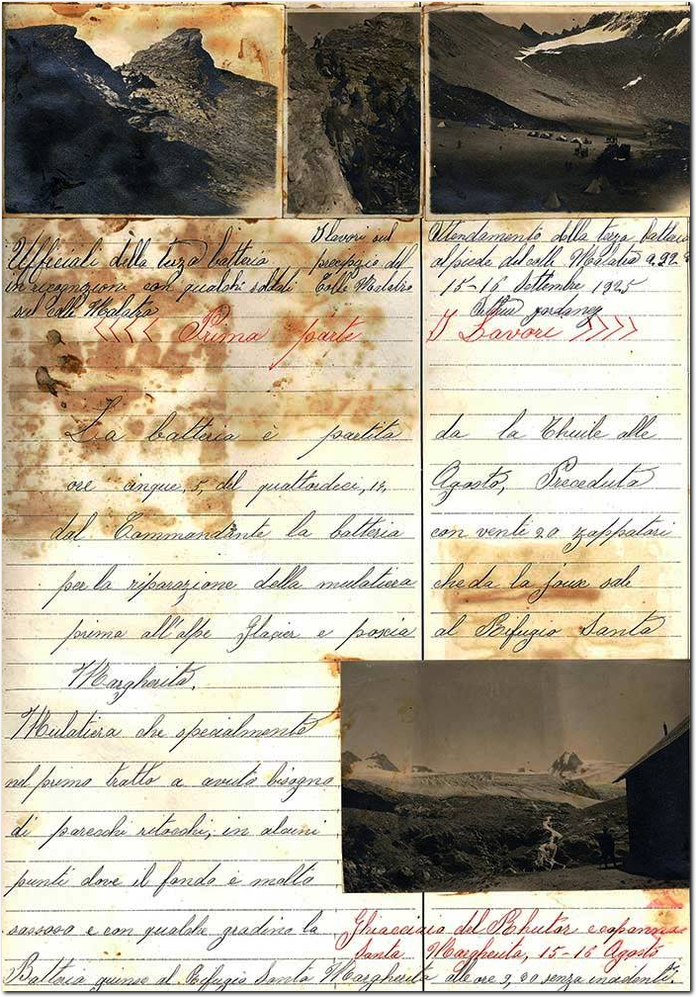 Ufficiali della terza battaia
in ricognizione con qualche soldati
sul colle Malatra
I lavori sul
precipizio del
Colle Malatra
Attendamento della terza battaia
al piede del colle Malatra
15-16 Settembre 1925
<<<< Prima parte
I Lavori >>>>
La batteria è partita da la Thuile alle
ore cinque, 5, del quattordici, 14, Agosto, Preceduta
dal Commandante la batteria con venti 20 zappatari
per la riparazione della mulatiera che da la joux sale
prima all'alpe Glacier e poscia al Rifugio Santa
Margherita.
Mulatiera che specialmente
nel primo tratto a avuto bisogno
di parecchi ritocchi, in alcuni
punti dove il fondo è molto
sassoso e con qualche gradino la
Ghiacciaio del Rhutor e capanna
Santa Margherita, 15-16 Agosto
Batteria giunse al Rifugio Santa Margherita alle ore 9,30 senza incidenti.